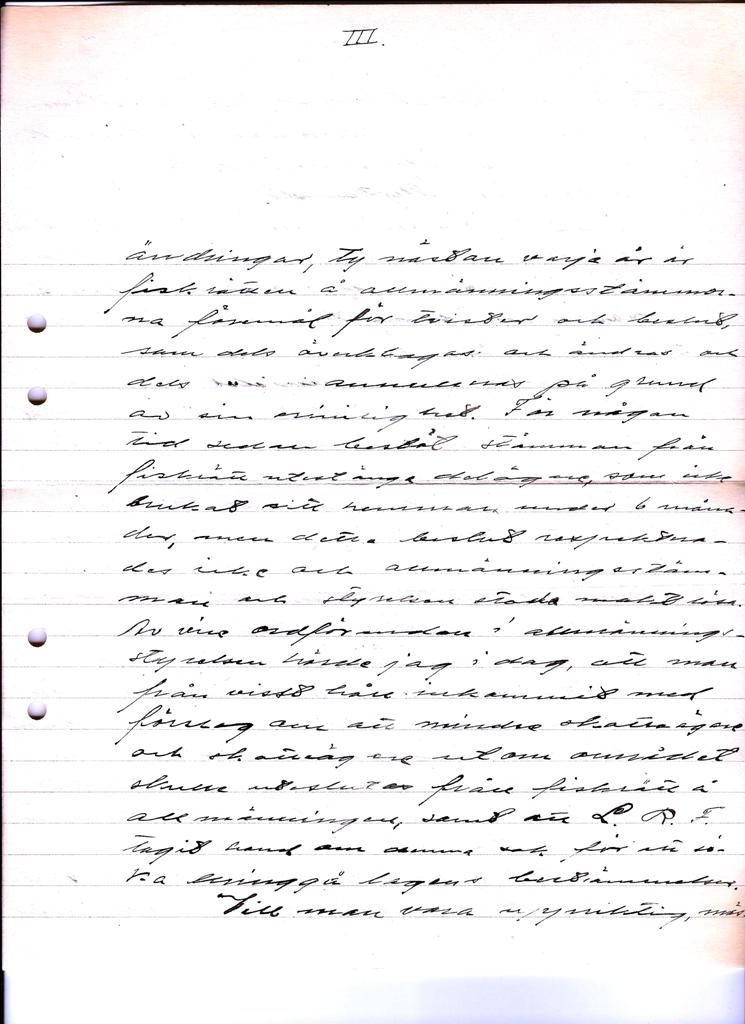 III.
ändringar, ty nästan varje år är
fiskrätten å allmänningsstämmor-
na föremål för tvister och beslut,
som dels överklagas och ändras och
dels annulleras på grund
av sin orimlighet. För någon
tid sedan beslöt stämman från
fiskrätt utestänga delägare, som icke
brukat sitt hemman under 6 måna-
der, men detta beslut respektera-
des icke och allmänningsstäm-
man och styrelsen stodo maktlösa.
Av vice ordföranden i allmännings-
styrelsen hörde jag i dag, att man
från visst håll inkommit med
förslag om att mindre skatteägare
och skatteägare utom området
skulle uteslutas från fiskrätt å
allmänningen, samt att L. R. F.
tagit hand om denna sak för att sö-
ka kringgå lagens bestämmelser.
Vill man vara uppriktig, mås